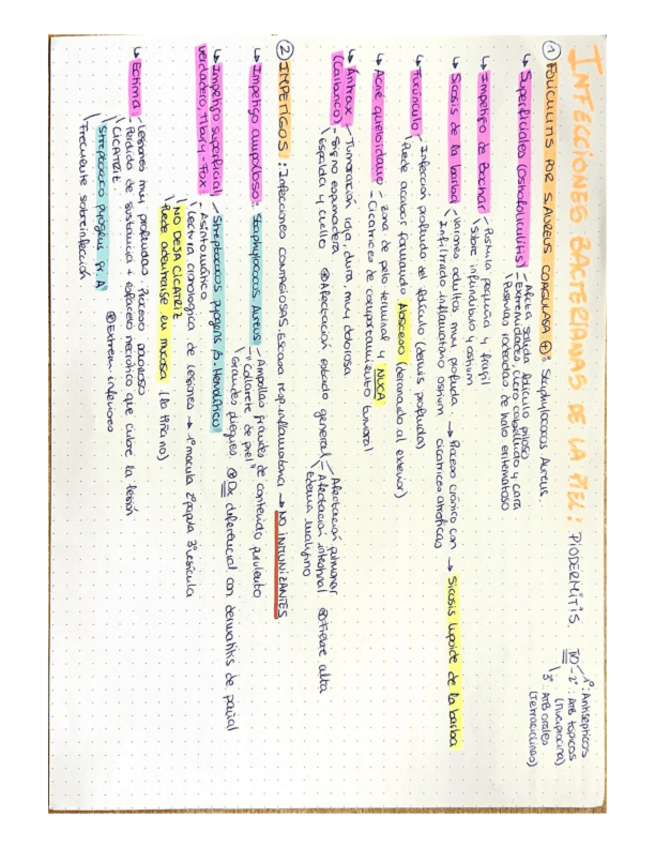 INFECCIONES BACTERIANAS DE LA PIEL: PIODERMITIS.
TTO - 1º: Antisépticos
- 2º: ATB tópicos
(Mupirocina)
3º: ATB orales
(Tetraciclinas)
① FOLICULITIS POR S. AUREUS COAGULASA ⊕: Staphylococcus Aureus.
↳ Superficiales (Ostiofoliculitis) - Afecta salida folículo piloso
- Extremidades, cuero cabelludo y cara
Pústulas rodeadas de halo eritematoso
↳ Impétigo de Bockhart - Pústula pequeña y frágil
Sobre infundíbulo y ostium
↳ Sicosis de la barba - Varones adultos muy profunda. → Proceso crónico con → Sicosis lupoide de la barba
Infiltrado inflamatorio ostium cicatrices atróficas
↳ Forúnculo - Infección profunda del folículo (dermis profunda)
Puede acabar formando Absceso (drenando al exterior)
↳ Acné queloideo - Zona de pelo terminal y NUCA
- Cicatrices de comportamiento tumoral
↳ Ántrax - Tumoración roja, dura, muy dolorosa
(Carbunco) - Signo espumadera
Espalda y cuello ⊛ Afectación estado general - Afectación pulmonar
- Afectación intestinal ⊛ Fiebre alta
Edema maligno
② IMPETIGOS: Infecciones contagiosas. Escasa resp. inflamatoria → NO INMUNIZANTES
↳ Impétigo ampolloso: Staphylococcus Aureus - Ampollas grandes de contenido purulento
"Collarete de piel"
Grandes pliegues ⊛ Dx diferencial con dermatitis de pañal
↳ Impétigo superficial - Streptococcus pyogens β-Hemolítico
verdadero, Tilbury-Fox - Asintomático
Lectura cronológica de lesiones → 1º mácula 2º pápula 3º vesícula
NO DEJA CICATRIZ
Puede adentrarse en mucosa
↳ Ectima - Lesiones muy profundas. Proceso doloroso
- Pérdida de sustancia + esfacelo necrótico que cubre la lesión
CICATRIZ. ⊛ Extrem. inferiores
Streptococo pyogens Gr A
Frecuente sobreinfección